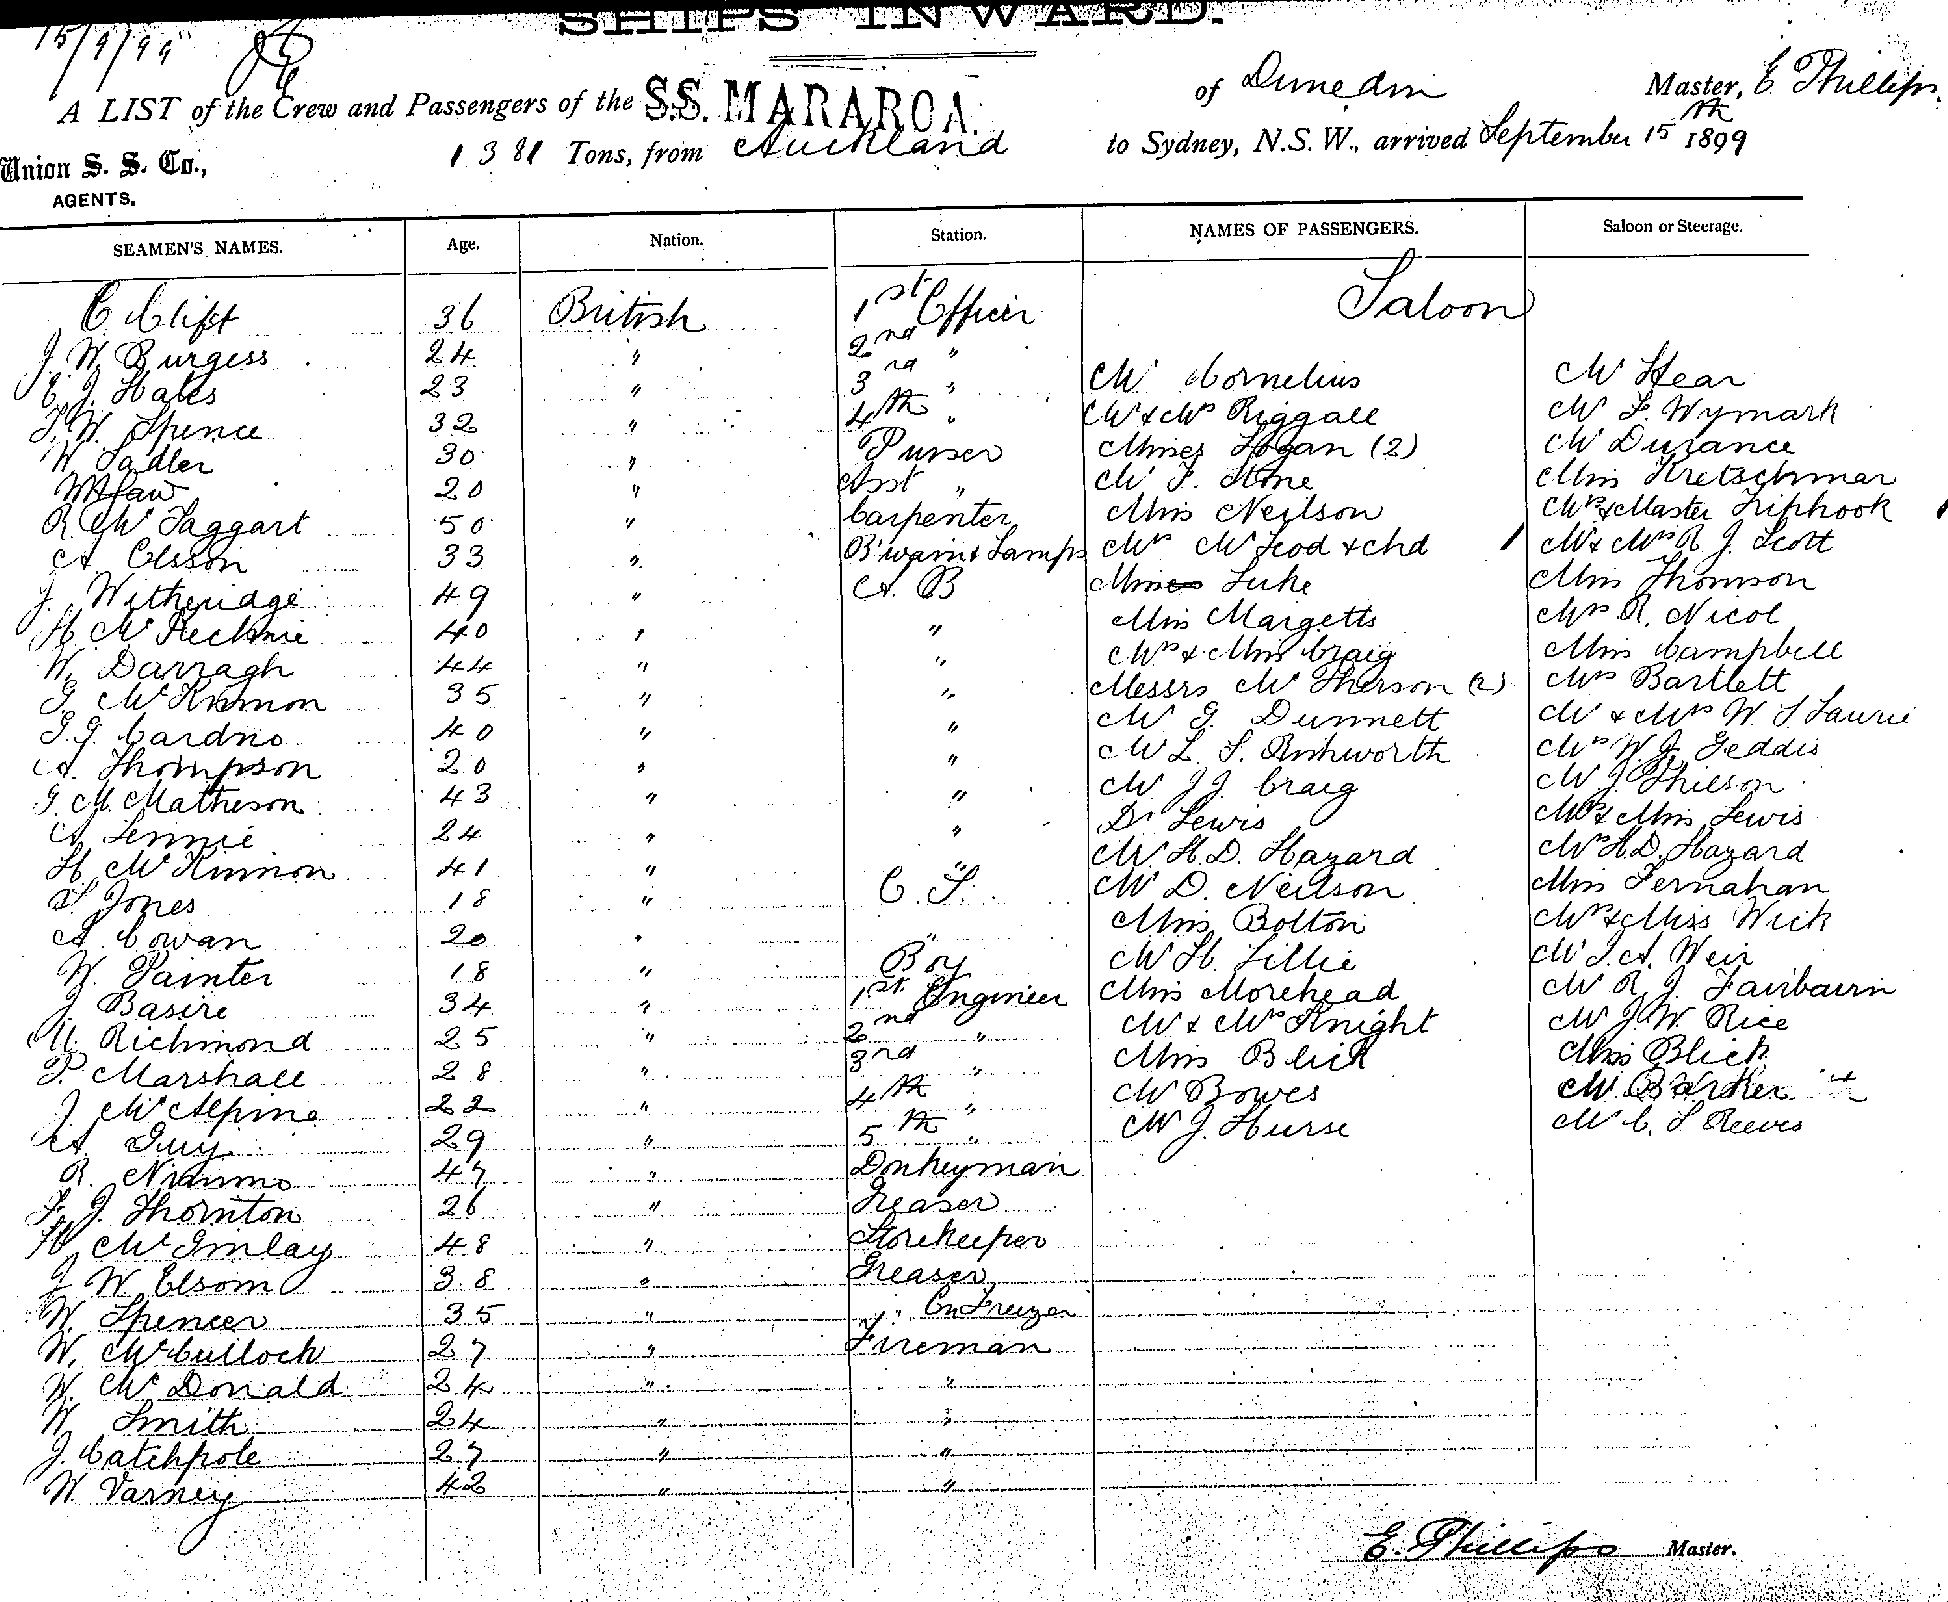 SHIPS INWARD.
15/9/99
A LIST of the Crew and Passengers of the S.S. MARAROA. of Dunedin Master, E. Phillips.
Union S. S. Co., 1381 Tons, from Auckland to Sydney, N.S.W., arrived September 15th 1899
AGENTS.
SEAMEN'S NAMES. Age. Nation. Station. NAMES OF PASSENGERS. Saloon or Steerage.
C Clift 36 British 1st Officer Saloon
J. W. Burgess 24 " 2nd "
E. J. Hales 23 " 3rd " Mr Cornelius Mr Hear
T. W. Spence 32 " 4th " Mr & Mrs Riggall Mr F. Wymark
W Sadler 30 " Purser Misses Hogan (2) Mr Durance
Law 20 " Asst " Mr F. Stone Miss Kretschmar
R. McTaggart 50 " Carpenter Miss Neilson Mrs & Master Triphook
A. Olsson 33 " B'wain & Lamps Mrs McLeod & chd Mr & Mrs R J. Scott
J. Witheridge 49 " A. B Miss Luke Miss Thomson
H. McKechnie 40 " " Miss Margetts Mrs R. Nicol
W. Darragh 44 " " Mrs & Miss Craig Miss Campbell
McKinnon 35 " " Messrs McPherson (2) Mrs Bartlett
Cardno 40 " " Mr G. Dunnett Mr & Mrs W. S Laurie
A. Thompson 20 " " Mr L. S. Ashworth Mrs W. J. Geddis
G. M. Matheson 43 " " Mr J J. Craig Mr J. Thieson
A Lennie 24 " " Dr Lewis Mrs & Miss Lewis
H. McKinnon 41 " " Mr H. D. Hazard Mrs H. D. Hazard
S Jones 18 " O. S. Mr D. Neilson Miss Ternahan
A. Cowan 20 " " Miss Bolton Mrs & Miss Wick
W. Painter 18 " Boy Mr H. Lillie Mr J. A. Weir
J. Basire 34 " 1st Engineer Miss Morehead Mr R. J. Fairbairn
Richmond 25 " 2nd " Mr & Mrs Knight Mr J. W. Rice
P. Marshall 28 " 3rd " Miss Blick Miss Blick
J. McAlpine 22 " 4th " Mr Bowes Mr Barker
A. Guy 29 " 5th " Mr J. Hurse Mr C. S Reeves
R. Nimmo 47 " Donkeyman
F. J. Thornton 26 " Greaser
H McGinlay 48 " Storekeeper
J W Elsom 38 " Greaser
W. Spencer 35 " " Freezer
W. McCulloch 27 " Fireman
W. McDonald 24 " "
W Smith 24 " "
J. Catchpole 27 " "
W Varney 42 " "
E. Phillips Master.